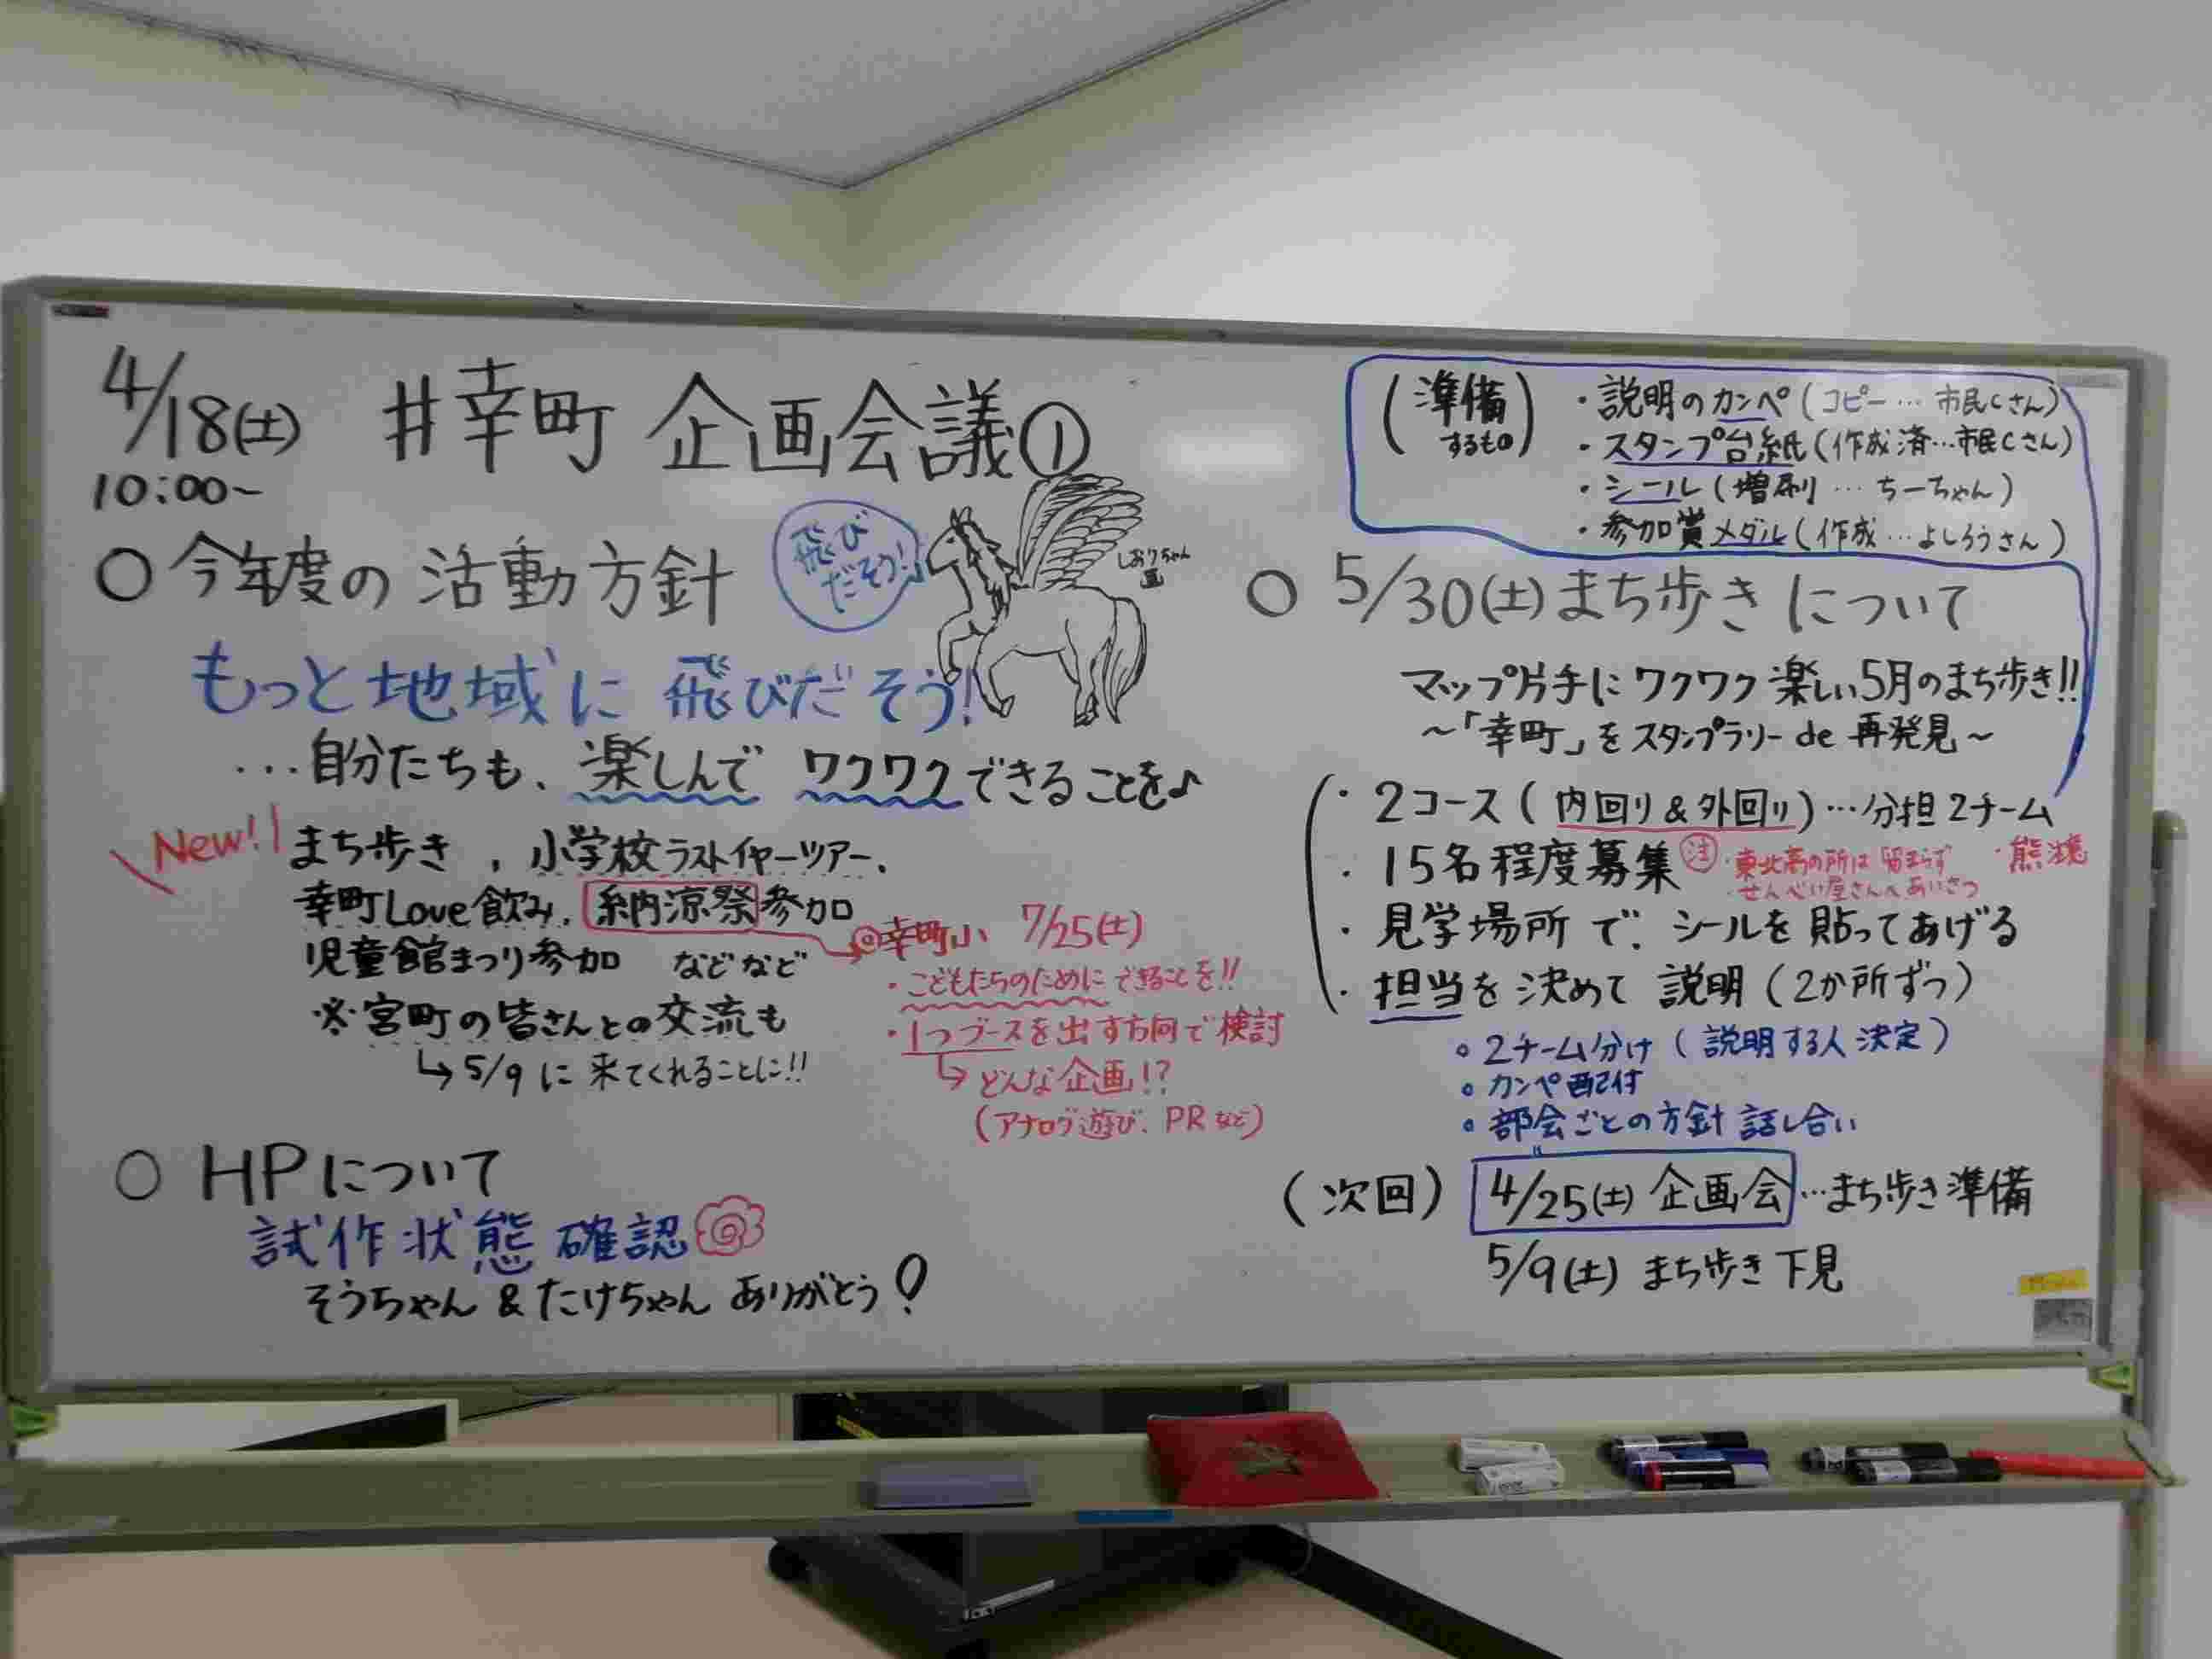 4/18(土) #幸町 企画会議①
10:00~
○今年度の活動方針
飛び
だそう!
しおりちゃん
画
もっと地域に飛びだそう!
…自分たちも、楽しんで ワクワクできることを♪
New!! まち歩き、小学校ラストイヤーツアー、
幸町Love飲み、納涼祭参加
児童館まつり参加 などなど
※宮町の皆さんとの交流も
↳5/9に来てくれることに!!
◎幸町小 7/25(土)
・こどもたちのためにできることを!!
・1つブースを出す方向で検討
↳どんな企画!?
(アナログ遊び、PRなど)
○ HPについて
試作状態 確認
そうちゃん&たけちゃん ありがとう!
(準備するもの)
・説明のカンペ(コピー…市民Cさん)
・スタンプ台紙(作成済…市民Cさん)
・シール(増刷…ちーちゃん)
・参加賞メダル(作成…よしろうさん)
○ 5/30(土)まち歩きについて
マップ片手にワクワク楽しい5月のまち歩き!!
～「幸町」をスタンプラリーde再発見～
・2コース(内回り&外回り)…分担2チーム
・15名程度募集
注・東北高の所は留まらず
・せんべい屋さんへあいさつ
・熊注意
・見学場所で、シールを貼ってあげる
・担当を決めて説明(2か所ずつ)
○2チーム分け(説明する人決定)
○カンペ配付
○部会ごとの方針話し合い
(次回) 4/25(土)企画会…まち歩き準備
5/9(土)まち歩き下見